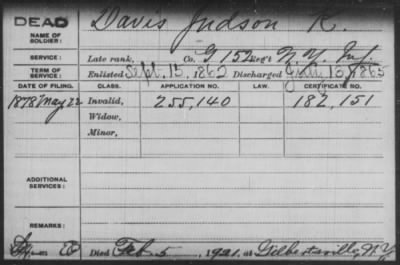 DEAD
NAME OF SOLDIER: Davis Judson R.
SERVICE: Late rank, Co. G 152 Reg't N.Y. Inf.
TERM OF SERVICE: Enlisted Sept. 15, 1862 Discharged July 13, 1865
DATE OF FILING. CLASS. APPLICATION NO. LAW. CERTIFICATE NO.
1878 May 22 Invalid, 255,140 182,151
Widow,
Minor,
ADDITIONAL SERVICES:
REMARKS:
Died Feb. 5, 1921, at Gilbertsville N.Y.